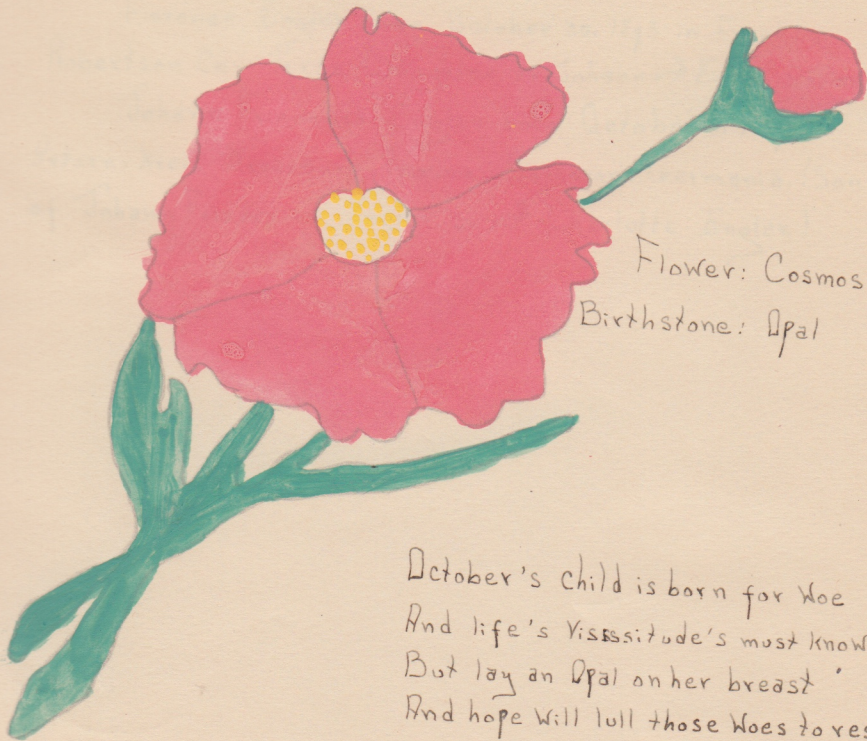 Flower: Cosmos
Birthstone: Opal
October's child is born for Woe
And life's Vissssitude's must know
But lay an Opal on her breast
And hope Will lull those Woes to